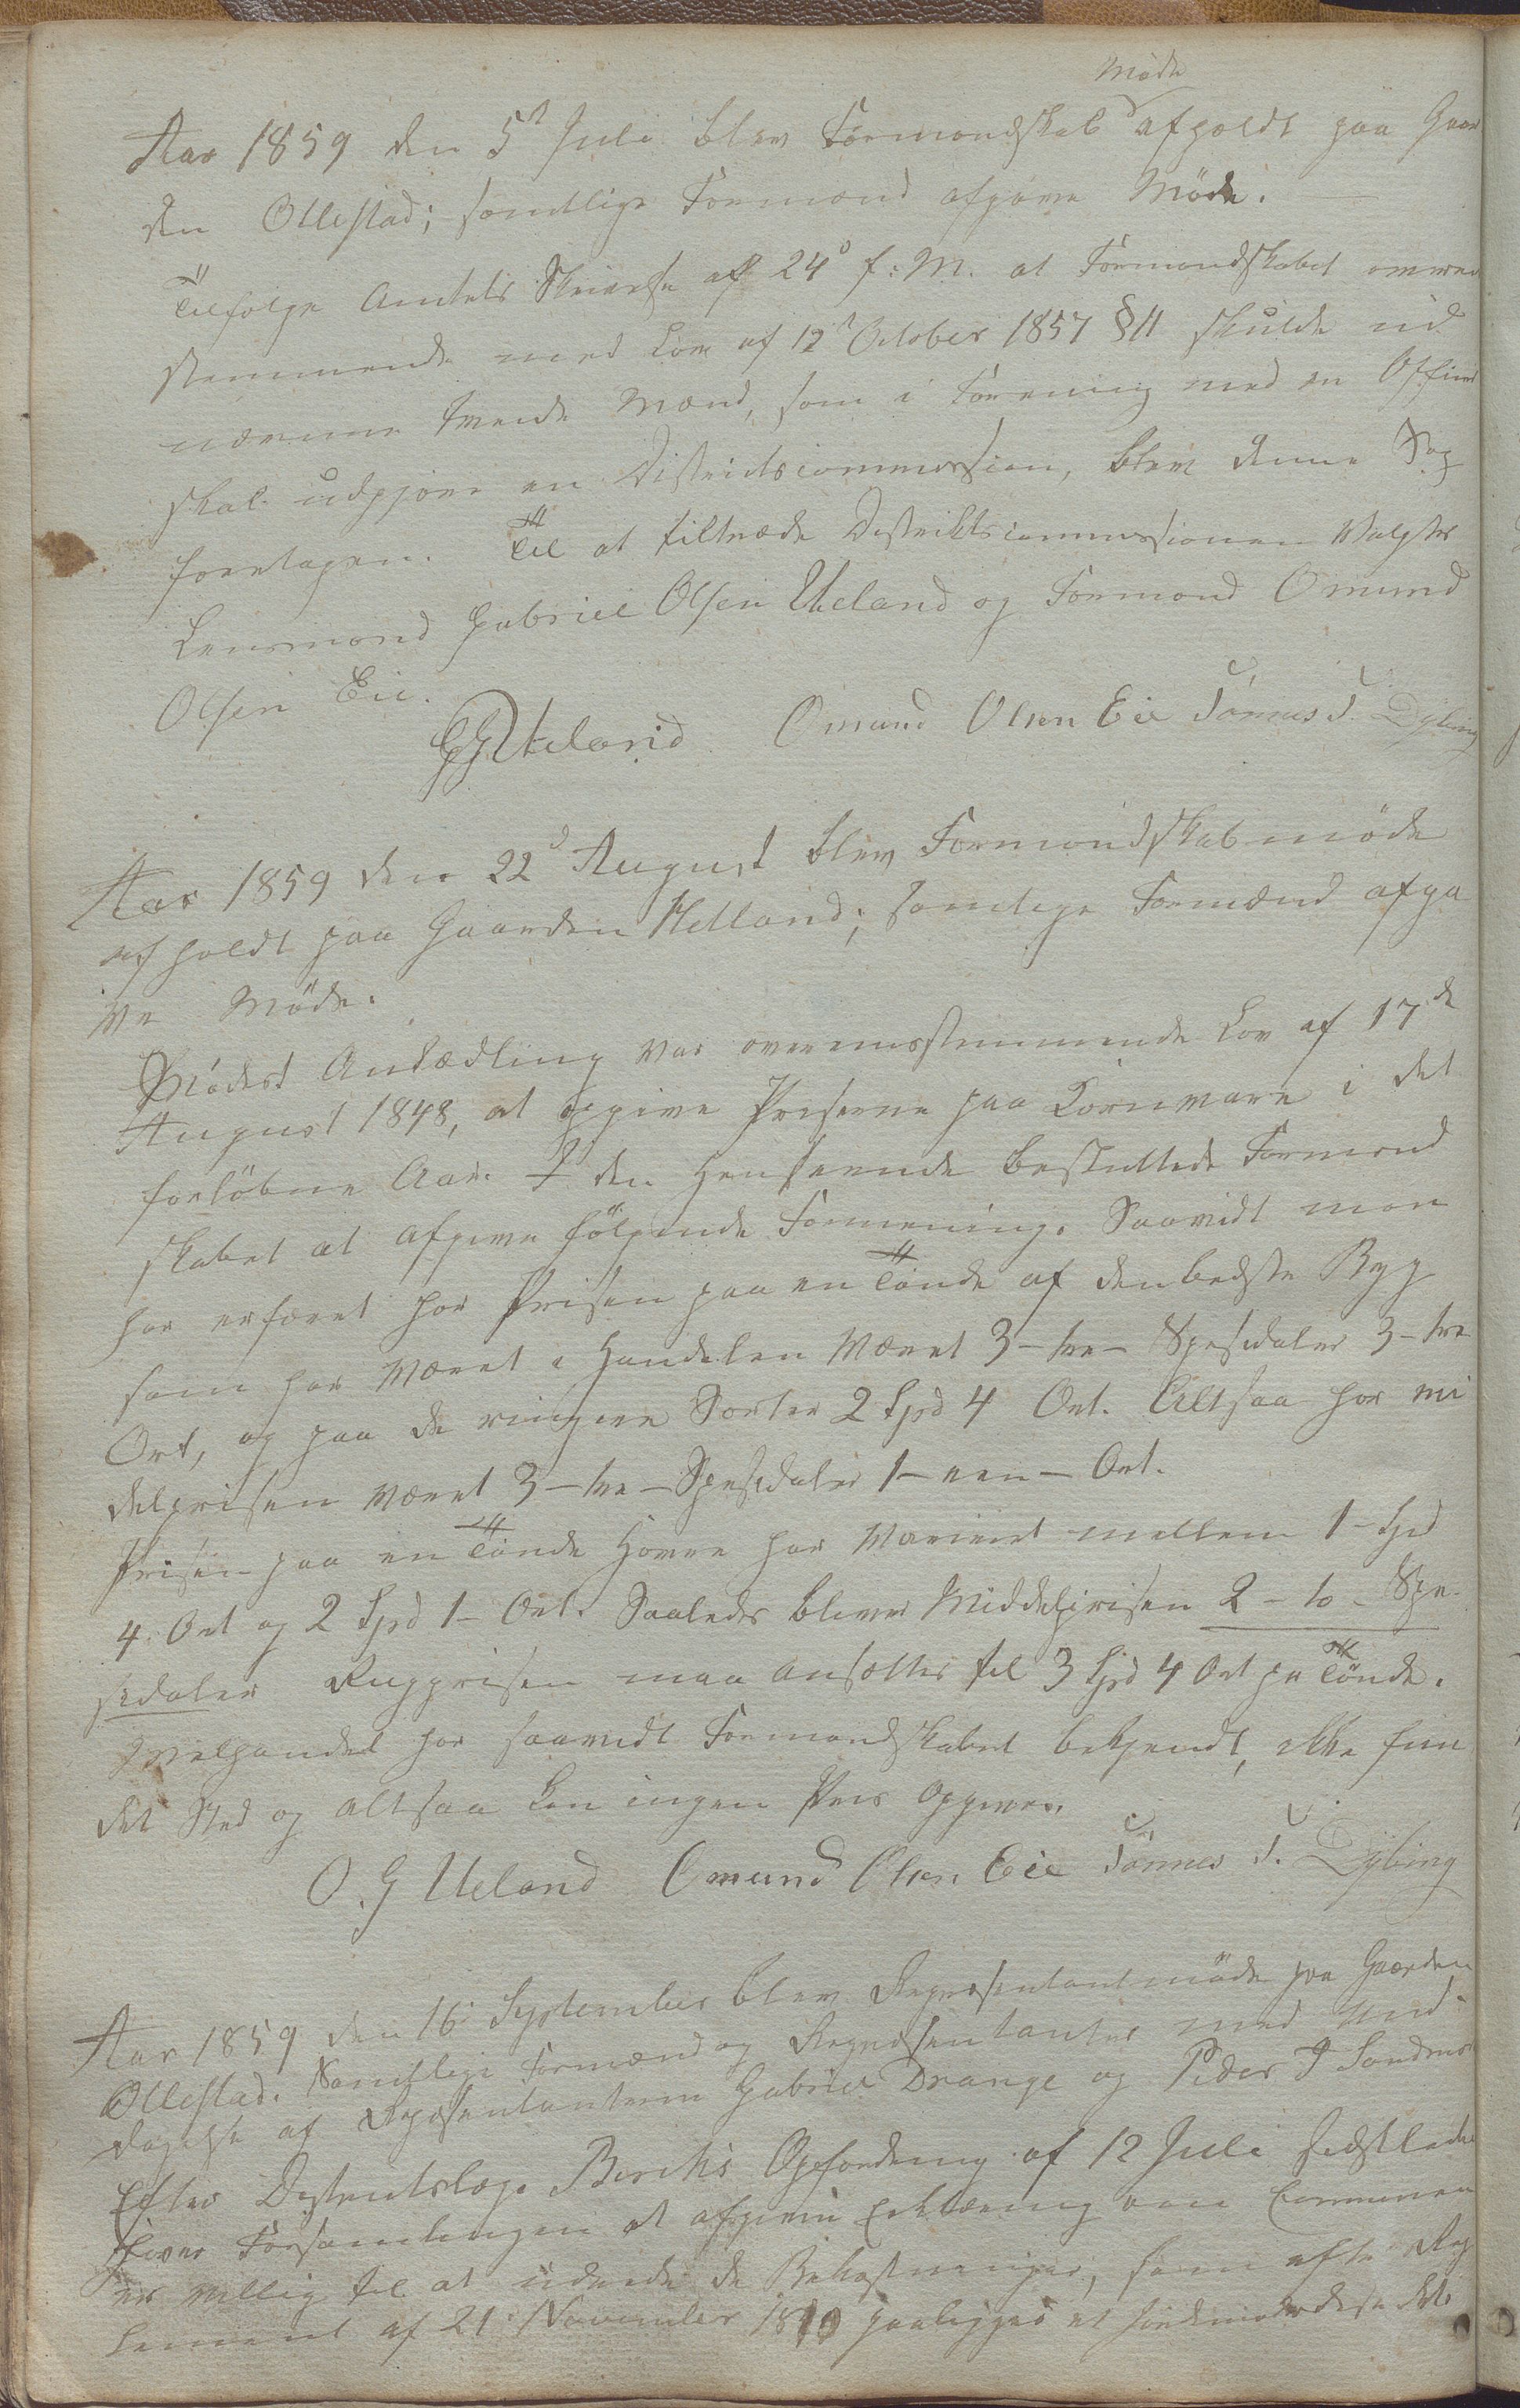 Møde
Aar 1859 den 5t Juli blev Formandskab afholdt paa Gaar
den Ollestad; samtlige Formænd afgave Møde.
Tilfølge Amtets Skrivelse af 24d f: M. at Formandskabet overens
stemmende med Lov af 12t October 1857 § 11 skulde ud
nævne tvende Mænd, som i Forening med en Officer
skal udgjøre en Districtscommission, blev denne Sag
foretagen. Til at tiltræde Distriktscommissionen Valgtes
Lensmand Gabriel Olsen Ueland og Formand Omund
Olsen Eie.
Ueland Omund Olsen Eie Tønnes T. Dybing
Aar 1859 den 22d August blev Formandskabmøde
afholdt paa Gaarden Helland; samtlige Formænd afga
ve Møde.
Mødets Anledling var overensstemmende Lov af 17de
August 1848, at opgive Priserne paa Kornvare i det
forløbne Aar. I den Henseende besluttede Formand
skabet at afgive følgende Formening. Saavidt man
har erfaret har Prisen paa en Tønde af den bedste Byg
som har Været i Handelen Været 3 - tre - Spesidaler 3 - tre
Ort, og paa de ringere Sorter 2 Spd 4 Ort. Altsaa har mi
delprisen Været 3 - tre - Spesidaler 1 - een - Ort.
Prisen paa en Tønde Havre har Varieret mellem 1 - Spd
4 Ort og 2 Spd 1 - Ort. Saaledes bliver Middelprisen 2 - to - Spe-
sidaler Rugprisen maa ansættes til 3 Spd 4 Ort pr Tønde.
Melhandel har saavidt Formandskabet bekjendt, ikke fun
det Sted og altsaa kan ingen Pris Opgives.
O. G Ueland Omund Olsen Eie Tønnes T. Dybing
Aar 1859 den 16 September blev Repræsentantmøde paa Gaarden
Ollestad. Samtlige Formænd og Repræsentanter med Und-
tagelse af Repæsentanterne Gabriel Drange og Peder J
Efter Distriktslæge Opfordring af 12 Juli sidstleden
bliver Forsamlingen at afgive Erklæring om Communen
er villig til at udrede de Bekostninger, som efter Reg
lement af 21 November 1810 paaligges et Jordemoderdistrikt